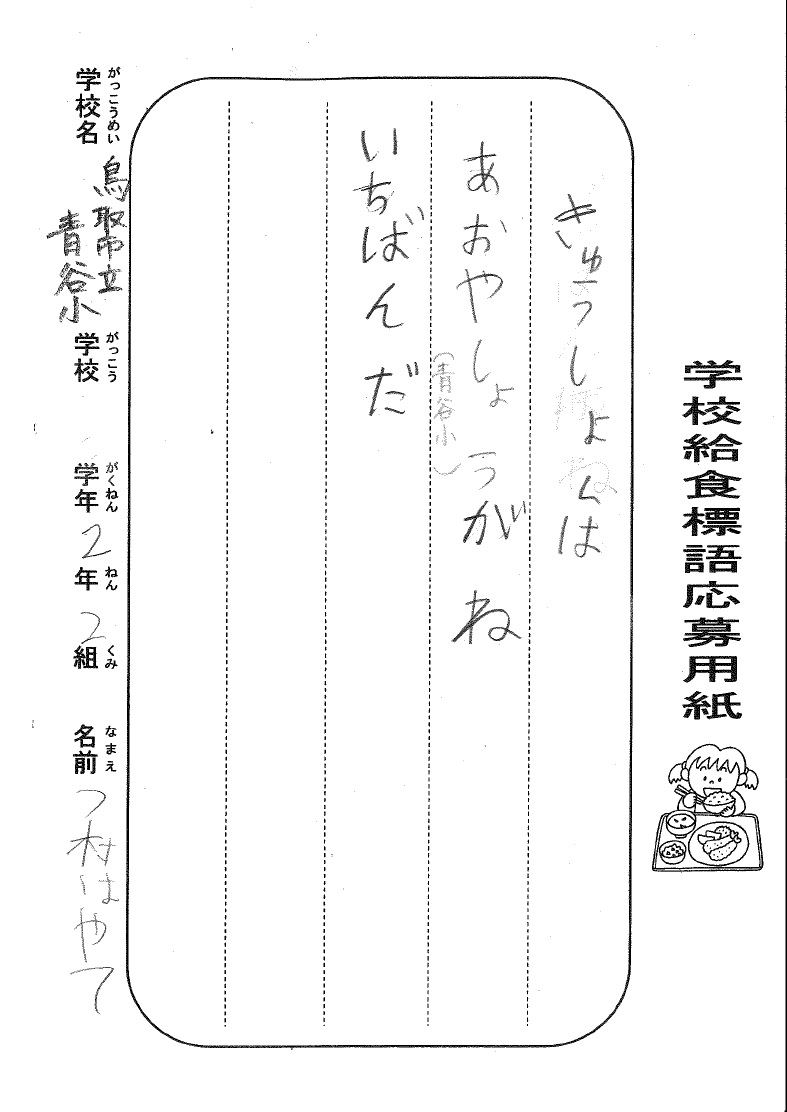 学校給食標語応募用紙
きゅうしょくは
あおやしょうがね
(青谷小)
いちばんだ
がっこうめい
学校名 鳥取市立
青谷小
がっこう
学校
がくねん ねん くみ
学年 2年 2組
なまえ
名前 つ村はやて